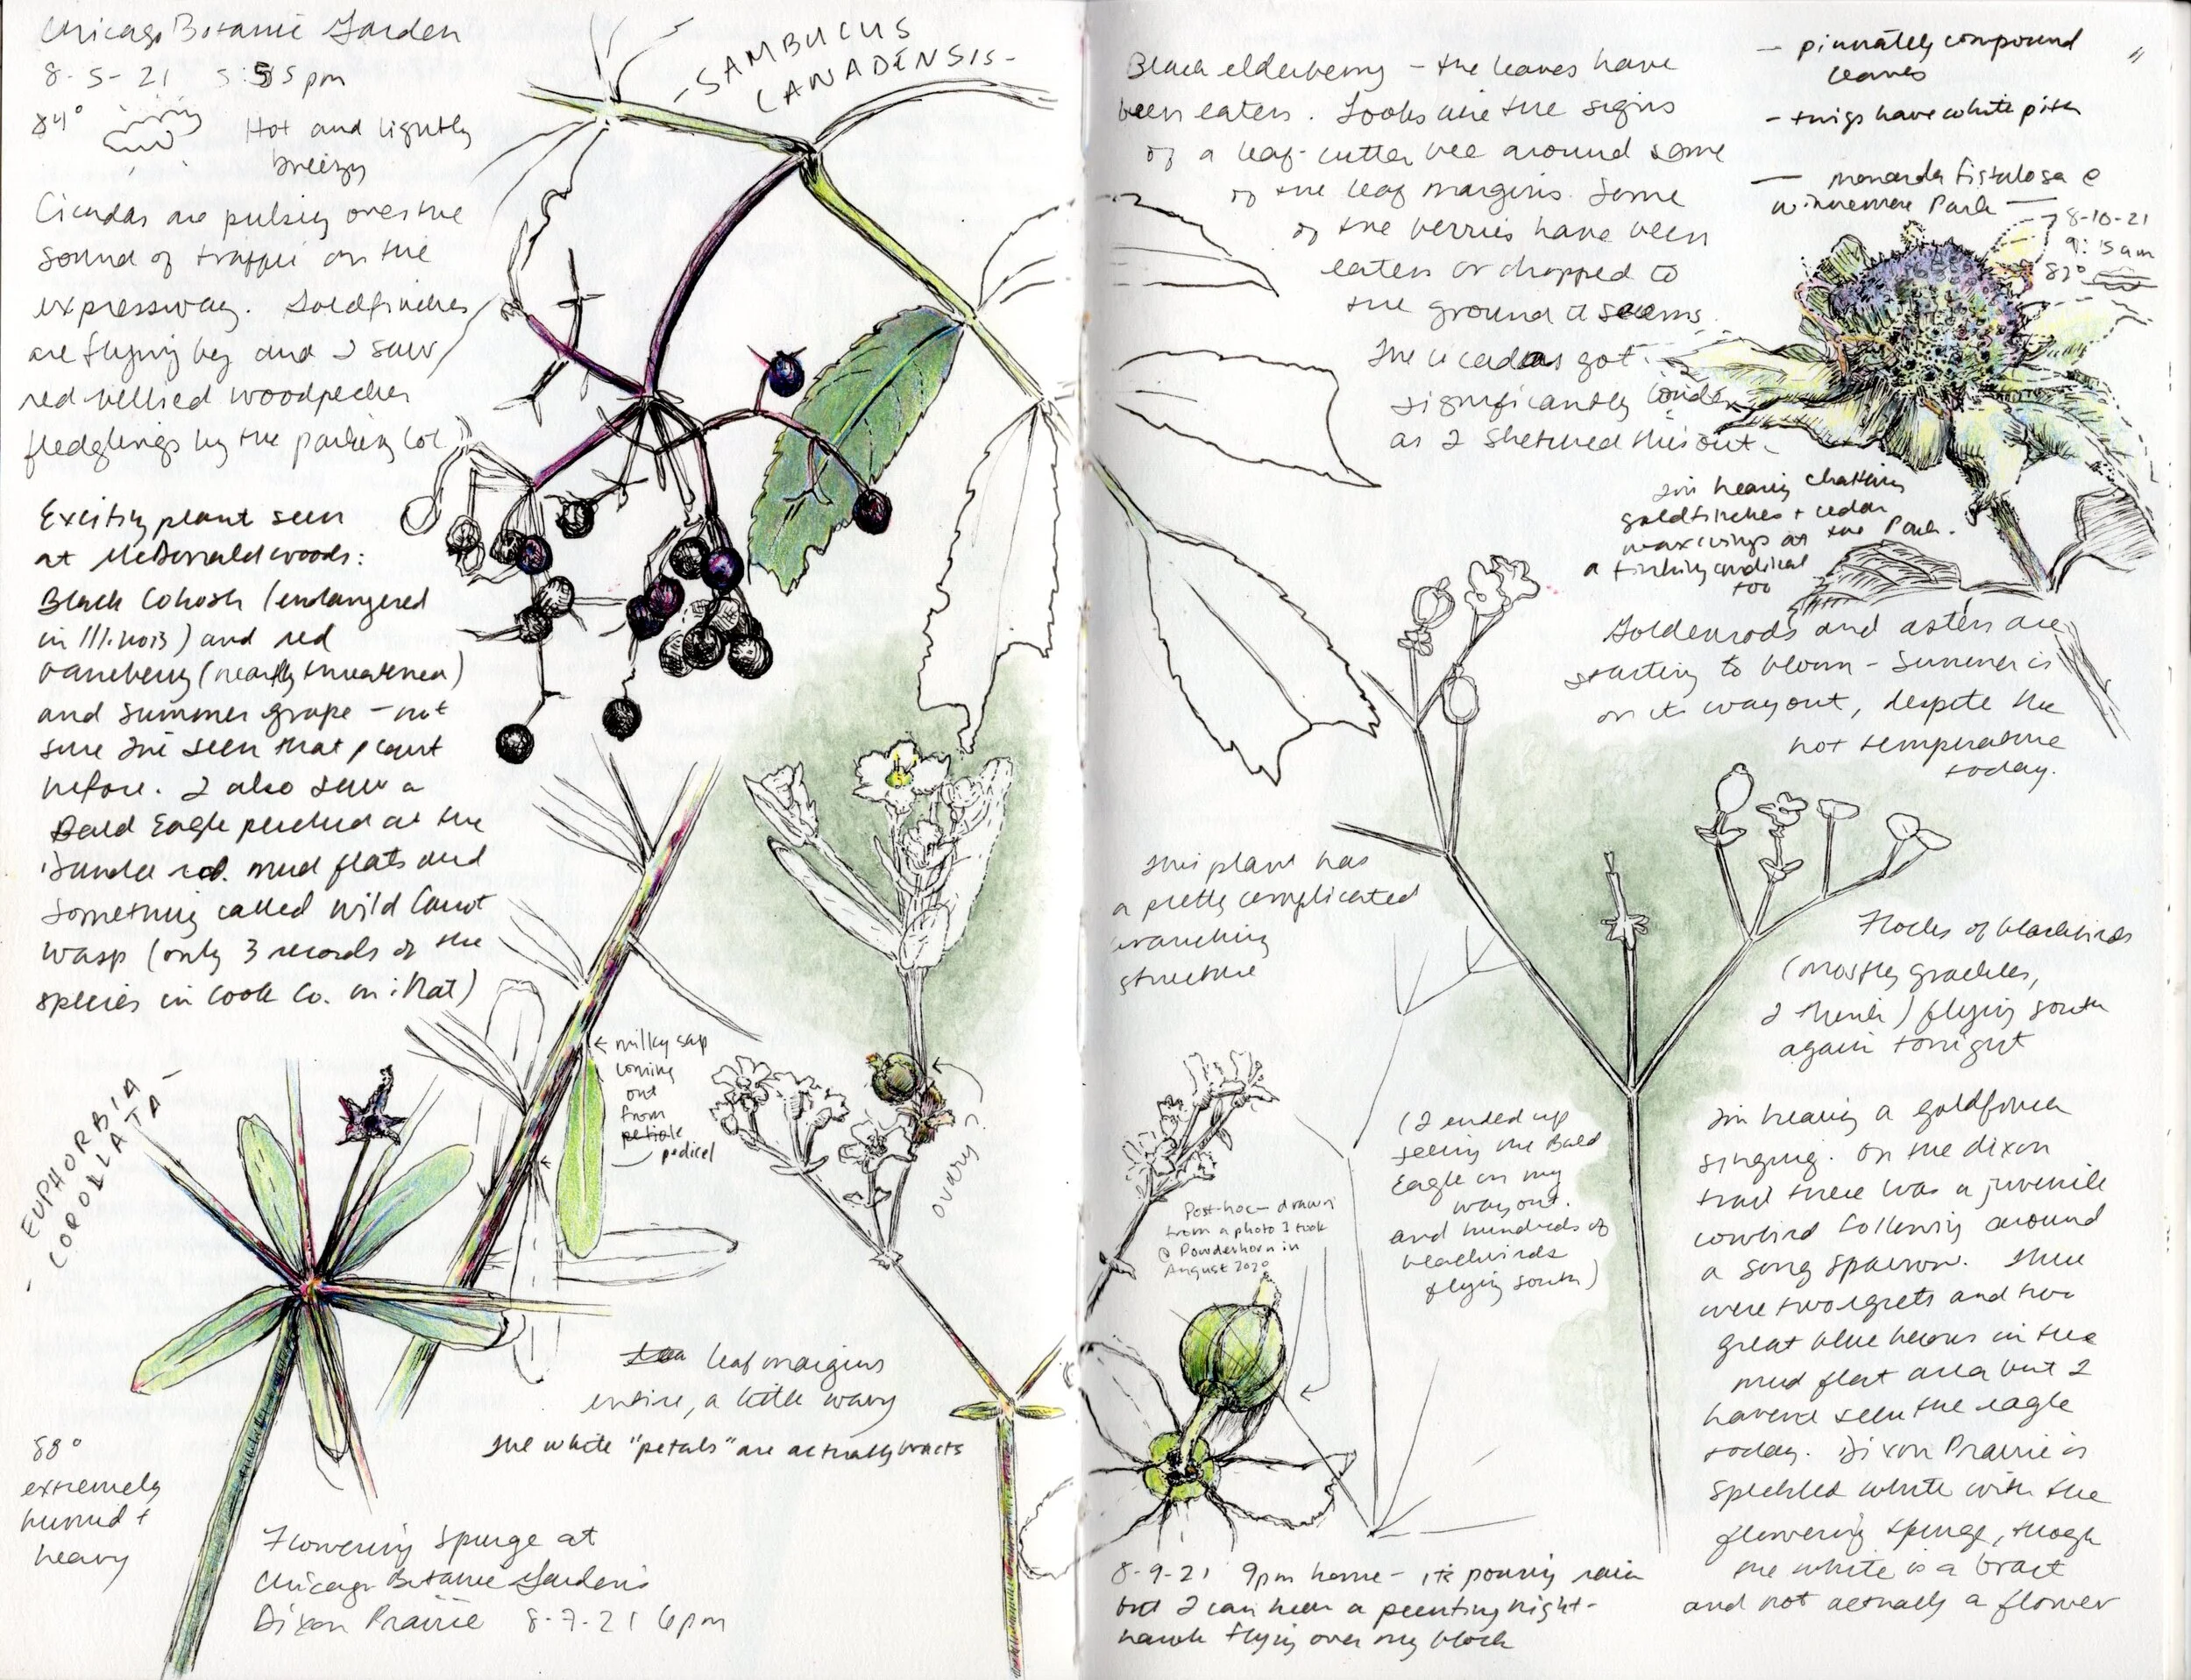 Chicago Botanic Garden
8-5-21 5:55pm
84° Hot and lightly
breezy
Cicadas are pulsing over the
sound of traffic on the
expressway. Goldfinches
are flying by and I saw
red bellied woodpecker
fledglings by the parking lot.
Exciting plant seen
at McDonald woods:
Black Cohosh (endangered
in Illinois) and red
baneberry (nearly threatened)
and summer grape - not
sure I've seen that plant
before. I also saw a
Bald Eagle perched at the
Dundee rd. mud flats and
something called Wild Carrot
Wasp (only 3 records of the
species in Cook Co. on iNat)
-SAMBUCUS
CANADENSIS-
- EUPHORBIA
COROLLATA -
← milky sap
coming
out
from
petiole
pedicel
ovary?
leaf margins
entire, a little wavy
The white "petals" are actually bracts
88°
extremely
humid +
heavy
Flowering Spurge at
Chicago Botanic Garden's
Dixon Prairie 8-7-21 6pm
Black elderberry - the leaves have
been eaten. Looks like the signs
of a leaf-cutter bee around some
of the leaf margins. Some
of the berries have been
eaten or dropped to
the ground it seems.
The cicadas got
significantly louder
as I sketched this out.
- pinnately compound
leaves
- twigs have white pith
- monarda fistulosa @
Winnemac Park -
8-10-21
9:15am
82°
I'm hearing chattering
goldfinches + cedar
waxwings at the Park.
a tinking cardinal
too
Goldenrods and asters are
starting to bloom - Summer is
on its way out, despite the
hot temperature
today.
This plant has
a pretty complicated
branching
structure
Flocks of blackbirds
(mostly grackles,
I think) flying south
again tonight
(I ended up
seeing the Bald
Eagle on my
way out.
and hundreds of
blackbirds
flying south)
Post-hoc - drawn
from a photo I took
@ Powderhorn in
August 2020
I'm hearing a goldfinch
singing. On the dixon
trail there was a juvenile
cowbird following around
a song sparrow. There
were two egrets and two
great blue herons in the
mud flat area but I
haven't seen the eagle
today. Dixon Prairie is
speckled white with the
flowering spurge, though
the white is a bract
and not actually a flower
8-9-21 9pm home - it's pouring rain
but I can hear a peenting night-
hawk flying over my block